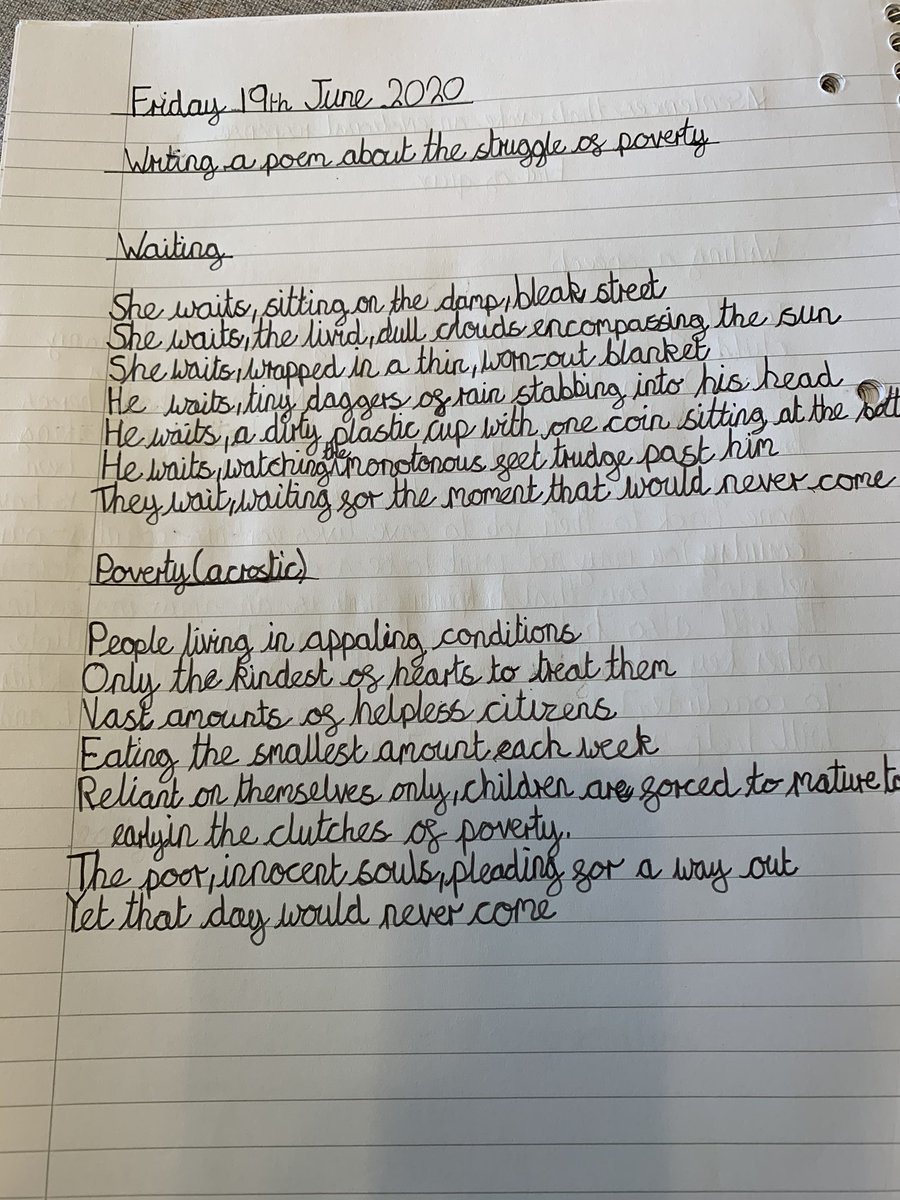 Friday 19th June 2020
Writing a poem about the struggle of poverty
Waiting
She waits, sitting on the damp, bleak street
She waits, the livid, dull clouds encompassing the sun
She waits, wrapped in a thin, worn-out blanket
He waits, tiny daggers of rain stabbing into his head
He waits, a dirty plastic cup with one coin sitting at the bott
He waits, watching the monotonous feet trudge past him
They wait, waiting for the moment that would never come
Poverty (acrostic)
People living in appaling conditions
Only the kindest of hearts to treat them
Vast amounts of helpless citizens
Eating the smallest amount each week
Reliant on themselves only, children are forced to mature to
early in the clutches of poverty.
The poor, innocent souls, pleading for a way out
Yet that day would never come